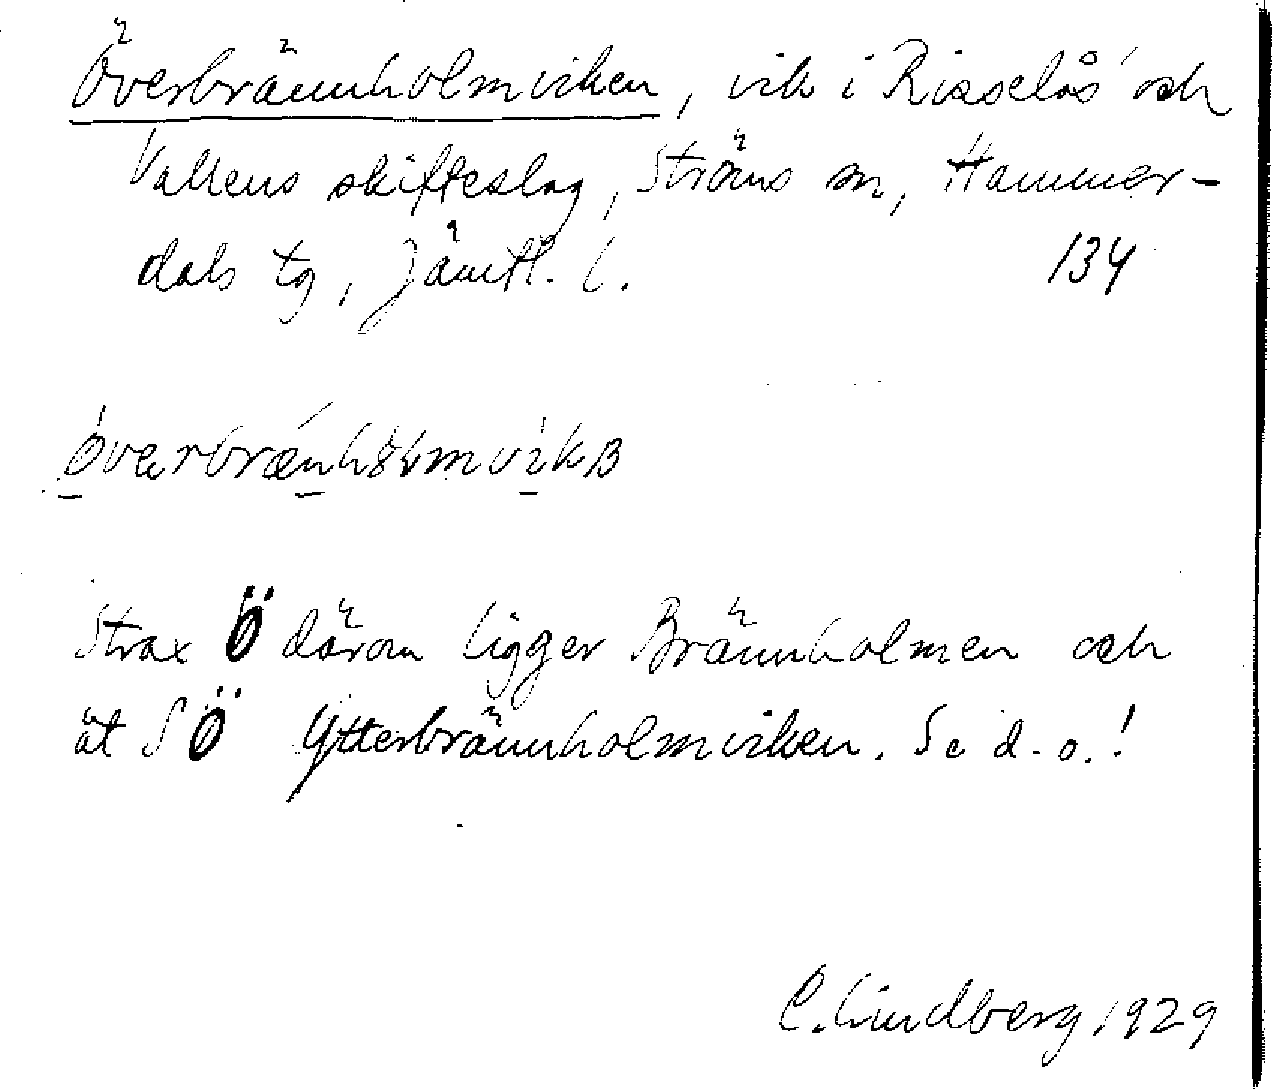 Överbrännholmviken, vik i Risselås och
Vallens skifteslag, Ströms sn, Hammer-
dals tg, Jämtl. l.
134
Strax Ö därom ligger Brännholmen och
åt SÖ Ytterbrännholmviken. Se d.o.!
C. Lindberg 1929